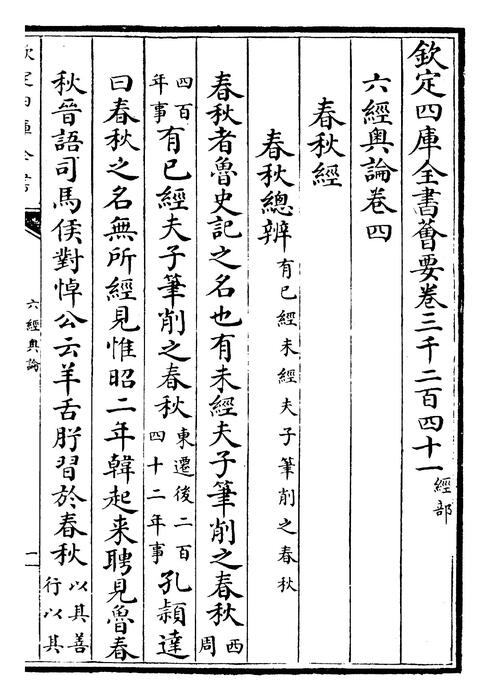 欽定四庫全書薈要卷三千二百四十一經部
六經奧論卷四
春秋經
春秋總辨有已經未經夫子筆削之春秋
春秋者魯史記之名也有未經夫子筆削之春秋西周
四百年事有已經夫子筆削之春秋東遷後二百四十二年事孔頴達
曰春秋之名無所經見惟昭二年韓起来聘見魯春
秋晉語司馬侯對悼公云羊舌肸習於春秋以其善行以其
欽定四庫全書
六經奧論
一